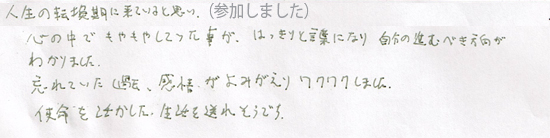 人生の転換期に来ていると思い、(参加しました)
心の中でもやもやしてった事が、はっきりと言葉になり 自分の進むべき方向が
わかりました。
忘れていた過去、感情がよみがえり ワクワクしました。
使命を生かした、生を送れそうです。